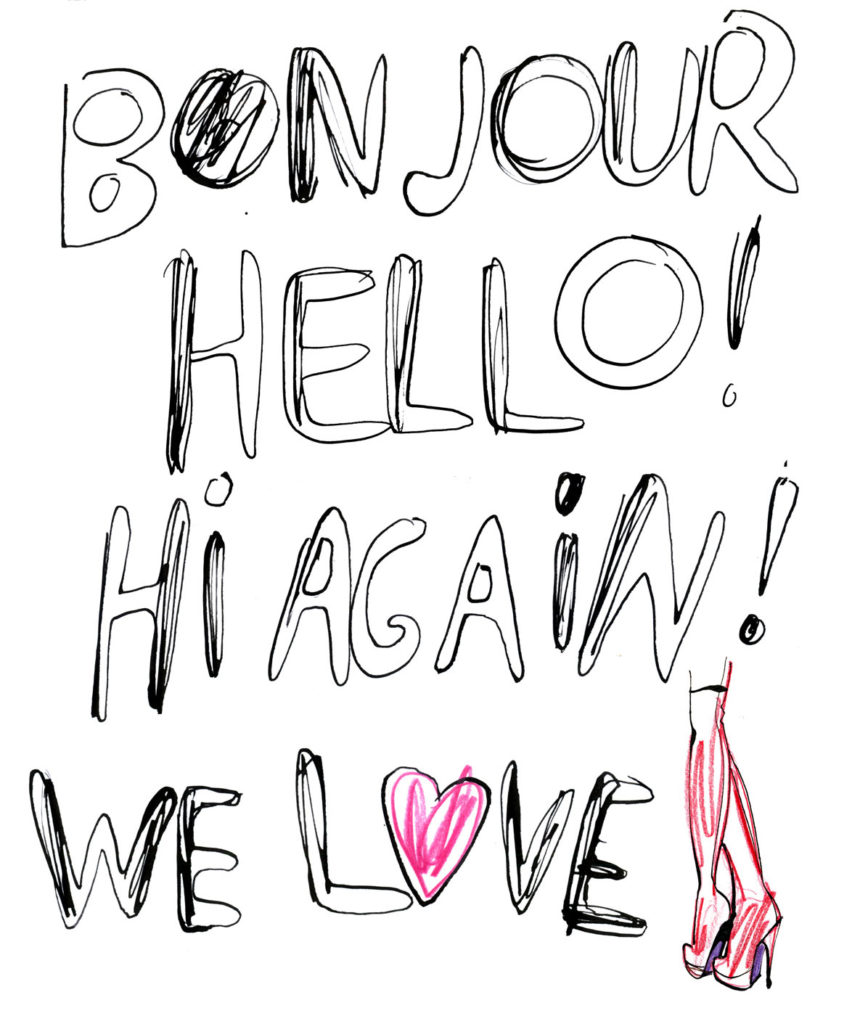 BONJOUR
HELLO!
Hi AGAiN!
WE LOVE